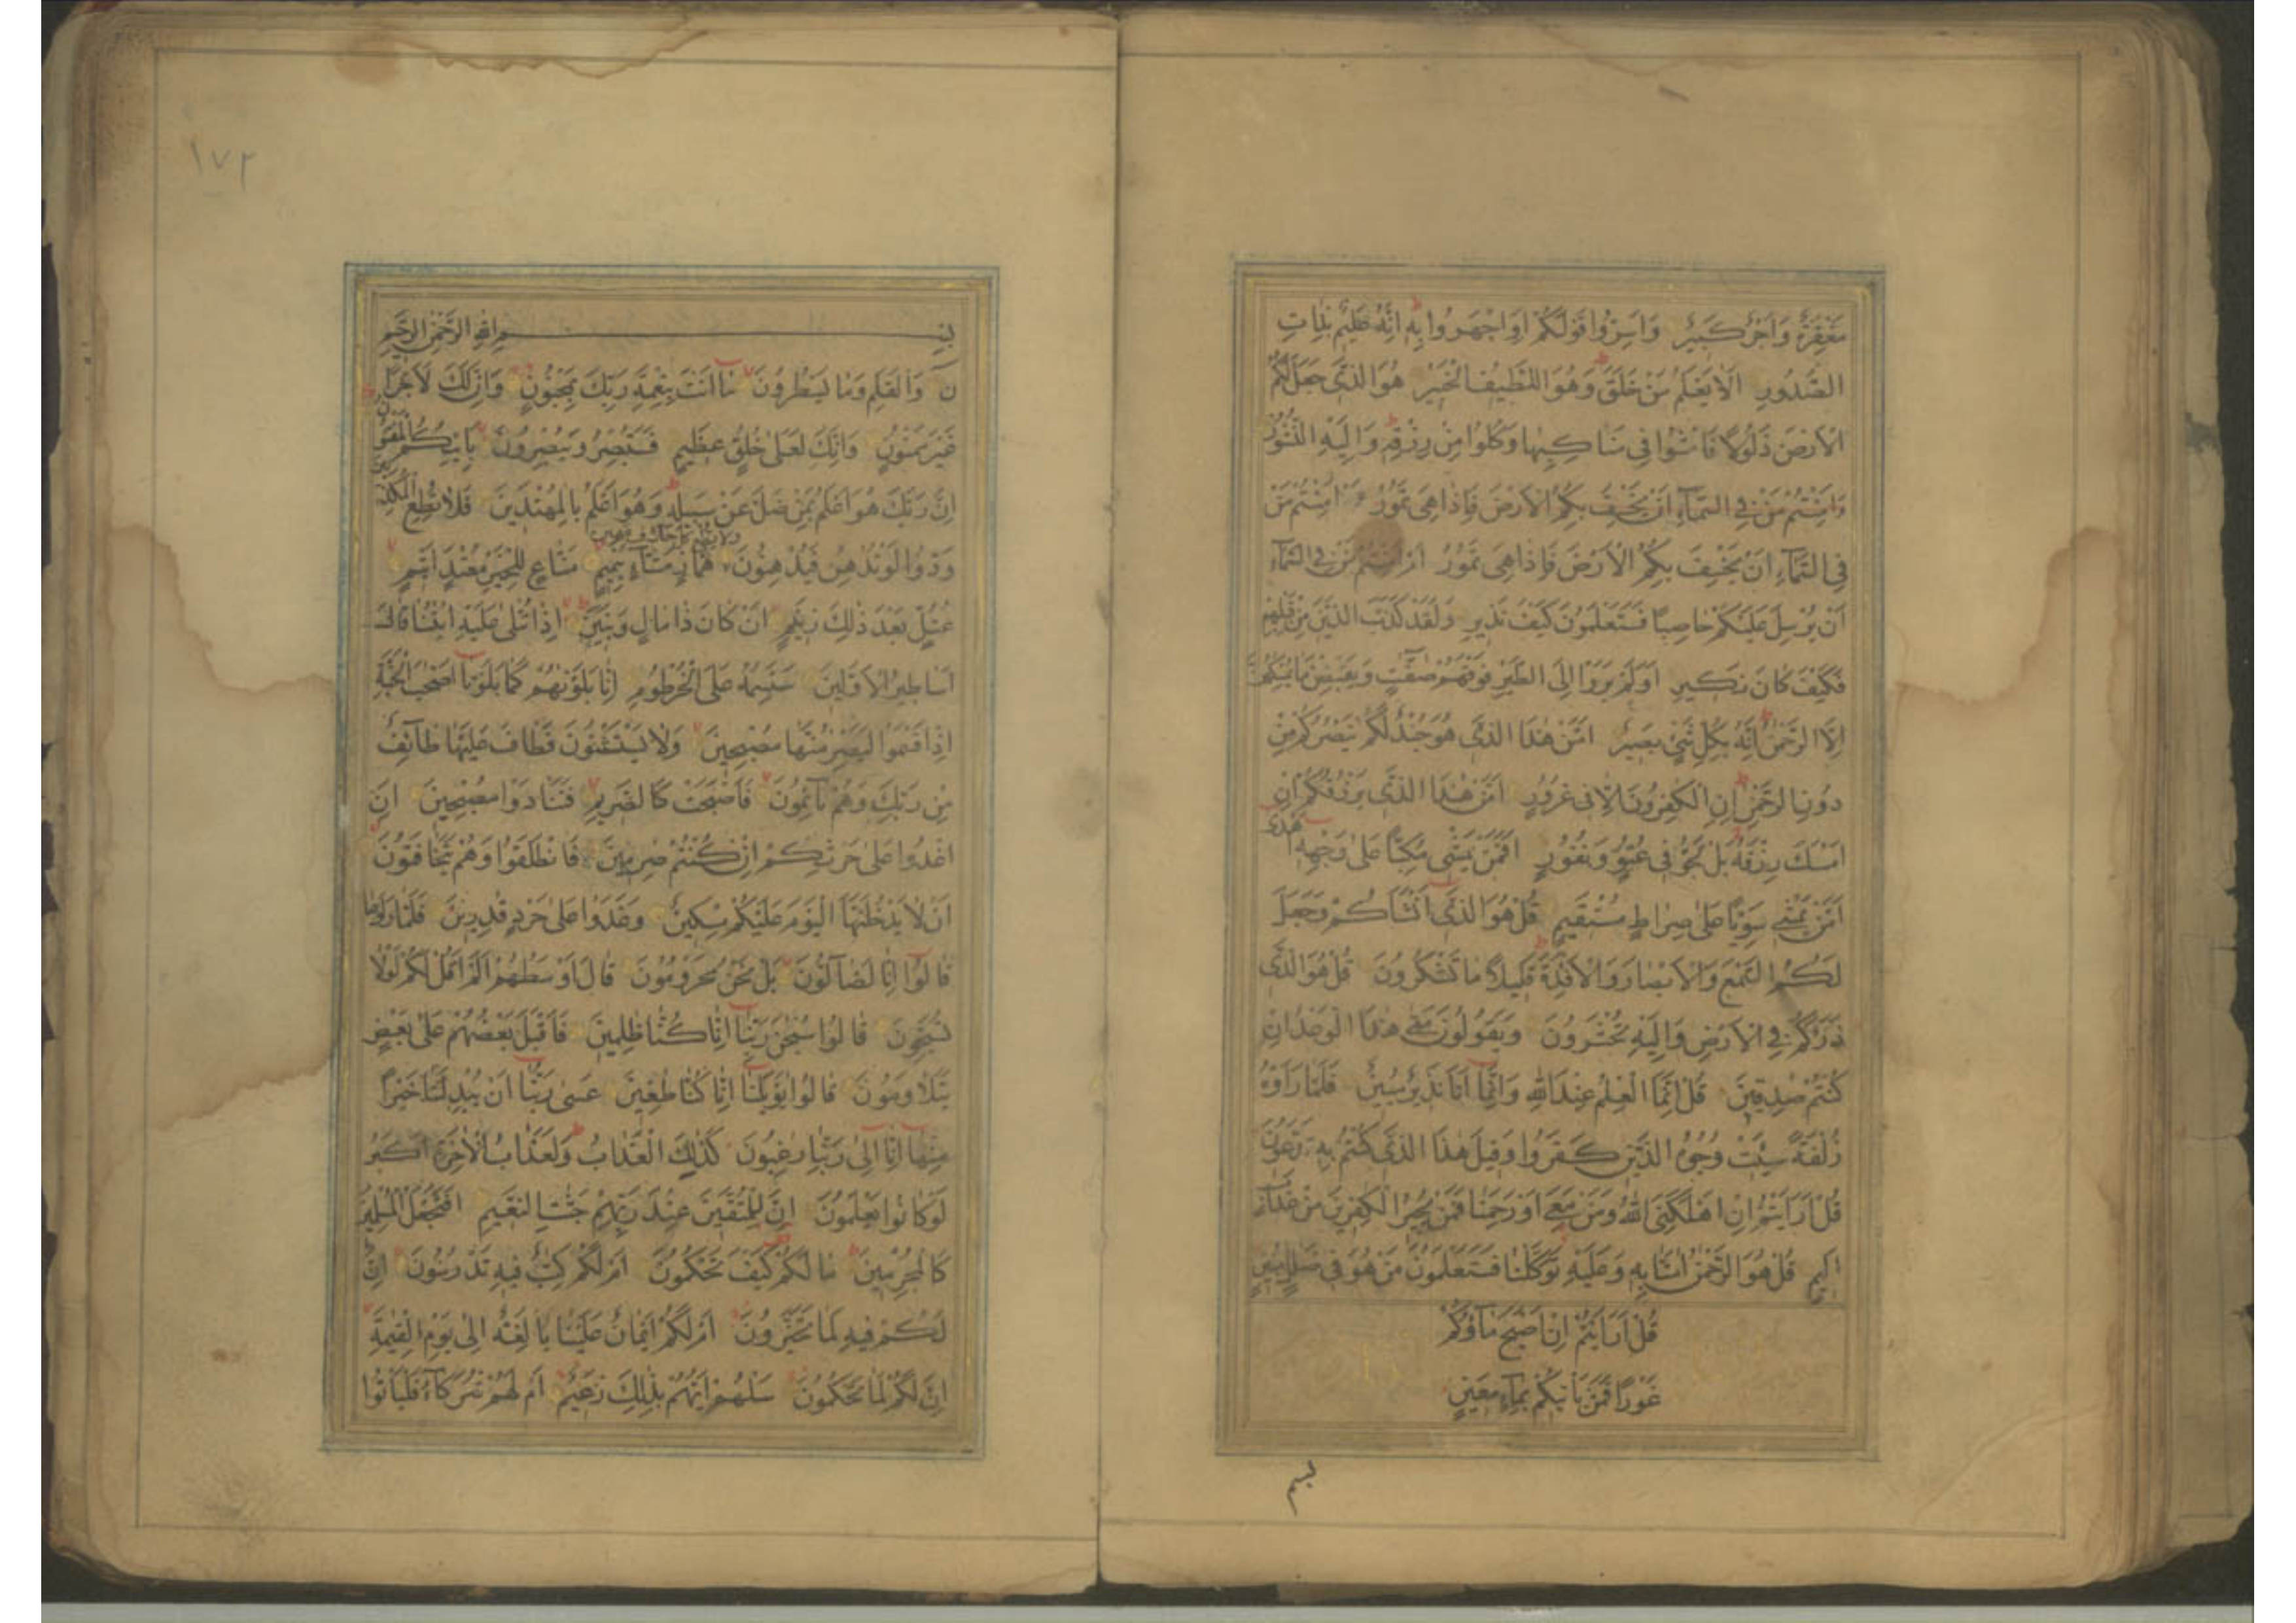 مَغْفِرَةٌ وَاَجْرٌ كَبِيرٌ وَاَسِرُّوا قَوْلَكُمْ اَوِ اجْهَرُوا بِهِ اِنَّهُ عَلِيمٌ بِذَاتِ
الصُّدُورِ اَلَا يَعْلَمُ مَنْ خَلَقَ وَهُوَ اللَّطِيفُ الْخَبِيرُ هُوَ الَّذِي جَعَلَ لَكُمُ
الْاَرْضَ ذَلُولًا فَامْشُوا فِي مَنَاكِبِهَا وَكُلُوا مِنْ رِزْقِهِ وَاِلَيْهِ النُّشُورُ
ءَاَمِنْتُمْ مَنْ فِي السَّمَآءِ اَنْ يَخْسِفَ بِكُمُ الْاَرْضَ فَاِذَا هِيَ تَمُورُ ءَاَمِنْتُمْ مَنْ
فِي السَّمَآءِ اَنْ يَخْسِفَ بِكُمُ الْاَرْضَ فَاِذَا هِيَ تَمُورُ اَمْ اَمِنْتُمْ مَنْ فِي السَّمَآءِ
اَنْ يُرْسِلَ عَلَيْكُمْ حَاصِبًا فَسَتَعْلَمُونَ كَيْفَ نَذِيرِ وَلَقَدْ كَذَّبَ الَّذِينَ مِنْ قَبْلِهِمْ
فَكَيْفَ كَانَ نَكِيرِ اَوَلَمْ يَرَوْا اِلَى الطَّيْرِ فَوْقَهُمْ صٰفّٰتٍ وَيَقْبِضْنَ مَا يُمْسِكُهُنَّ
اِلَّا الرَّحْمٰنُ اِنَّهُ بِكُلِّ شَيْءٍ بَصِيرٌ اَمَّنْ هٰذَا الَّذِي هُوَ جُنْدٌ لَكُمْ يَنْصُرُكُمْ مِنْ
دُونِ الرَّحْمٰنِ اِنِ الْكٰفِرُونَ اِلَّا فِي غُرُورٍ اَمَّنْ هٰذَا الَّذِي يَرْزُقُكُمْ اِنْ
اَمْسَكَ رِزْقَهُ بَلْ لَجُّوا فِي عُتُوٍّ وَنُفُورٍ اَفَمَنْ يَمْشِي مُكِبًّا عَلٰى وَجْهِهِ اَهْدٰى
اَمَّنْ يَمْشِي سَوِيًّا عَلٰى صِرَاطٍ مُسْتَقِيمٍ قُلْ هُوَ الَّذِي اَنْشَاَكُمْ وَجَعَلَ
لَكُمُ السَّمْعَ وَالْاَبْصَارَ وَالْاَفْئِدَةَ قَلِيلًا مَا تَشْكُرُونَ قُلْ هُوَ الَّذِي
ذَرَاَكُمْ فِي الْاَرْضِ وَاِلَيْهِ تُحْشَرُونَ وَيَقُولُونَ مَتٰى هٰذَا الْوَعْدُ اِنْ
كُنْتُمْ صٰدِقِينَ قُلْ اِنَّمَا الْعِلْمُ عِنْدَ اللّٰهِ وَاِنَّمَا اَنَا نَذِيرٌ مُبِينٌ فَلَمَّا رَاَوْهُ
زُلْفَةً سِيئَتْ وُجُوهُ الَّذِينَ كَفَرُوا وَقِيلَ هٰذَا الَّذِي كُنْتُمْ بِهِ تَدَّعُونَ
قُلْ اَرَاَيْتُمْ اِنْ اَهْلَكَنِيَ اللّٰهُ وَمَنْ مَعِيَ اَوْ رَحِمَنَا فَمَنْ يُجِيرُ الْكٰفِرِينَ مِنْ عَذَابٍ
اَلِيمٍ قُلْ هُوَ الرَّحْمٰنُ اٰمَنَّا بِهِ وَعَلَيْهِ تَوَكَّلْنَا فَسَتَعْلَمُونَ مَنْ هُوَ فِي ضَلٰلٍ مُبِينٍ
قُلْ اَرَاَيْتُمْ اِنْ اَصْبَحَ مَآؤُكُمْ
غَوْرًا فَمَنْ يَاْتِيكُمْ بِمَآءٍ مَعِينٍ
بسم
١٧٢
بِسْمِ اللّٰهِ الرَّحْمٰنِ الرَّحِيمِ
نٓ وَالْقَلَمِ وَمَا يَسْطُرُونَ مَا اَنْتَ بِنِعْمَةِ رَبِّكَ بِمَجْنُونٍ وَاِنَّ لَكَ لَاَجْرًا
غَيْرَ مَمْنُونٍ وَاِنَّكَ لَعَلٰى خُلُقٍ عَظِيمٍ فَسَتُبْصِرُ وَيُبْصِرُونَ بِاَيِّكُمُ الْمَفْتُونُ
اِنَّ رَبَّكَ هُوَ اَعْلَمُ بِمَنْ ضَلَّ عَنْ سَبِيلِهِ وَهُوَ اَعْلَمُ بِالْمُهْتَدِينَ فَلَا تُطِعِ الْمُكَذِّبِينَ
وَلَا تُطِعْ كُلَّ حَلَّافٍ مَهِينٍ
وَدُّوا لَوْ تُدْهِنُ فَيُدْهِنُونَ هَمَّازٍ مَشَّآءٍ بِنَمِيمٍ مَنَّاعٍ لِلْخَيْرِ مُعْتَدٍ اَثِيمٍ
عُتُلٍّ بَعْدَ ذٰلِكَ زَنِيمٍ اَنْ كَانَ ذَا مَالٍ وَبَنِينَ اِذَا تُتْلٰى عَلَيْهِ اٰيٰتُنَا قَالَ
اَسَاطِيرُ الْاَوَّلِينَ سَنَسِمُهُ عَلَى الْخُرْطُومِ اِنَّا بَلَوْنٰهُمْ كَمَا بَلَوْنَا اَصْحٰبَ الْجَنَّةِ
اِذْ اَقْسَمُوا لَيَصْرِمُنَّهَا مُصْبِحِينَ وَلَا يَسْتَثْنُونَ فَطَافَ عَلَيْهَا طَآئِفٌ
مِنْ رَبِّكَ وَهُمْ نَآئِمُونَ فَاَصْبَحَتْ كَالصَّرِيمِ فَتَنَادَوْا مُصْبِحِينَ اَنِ
اغْدُوا عَلٰى حَرْثِكُمْ اِنْ كُنْتُمْ صٰرِمِينَ فَانْطَلَقُوا وَهُمْ يَتَخَافَتُونَ
اَنْ لَا يَدْخُلَنَّهَا الْيَوْمَ عَلَيْكُمْ مِسْكِينٌ وَغَدَوْا عَلٰى حَرْدٍ قٰدِرِينَ فَلَمَّا رَاَوْهَا
قَالُوا اِنَّا لَضَآلُّونَ بَلْ نَحْنُ مَحْرُومُونَ قَالَ اَوْسَطُهُمْ اَلَمْ اَقُلْ لَكُمْ لَوْلَا
تُسَبِّحُونَ قَالُوا سُبْحٰنَ رَبِّنَا اِنَّا كُنَّا ظٰلِمِينَ فَاَقْبَلَ بَعْضُهُمْ عَلٰى بَعْضٍ
يَتَلَاوَمُونَ قَالُوا يٰوَيْلَنَا اِنَّا كُنَّا طٰغِينَ عَسٰى رَبُّنَا اَنْ يُبْدِلَنَا خَيْرًا
مِنْهَا اِنَّا اِلٰى رَبِّنَا رٰغِبُونَ كَذٰلِكَ الْعَذَابُ وَلَعَذَابُ الْاٰخِرَةِ اَكْبَرُ
لَوْ كَانُوا يَعْلَمُونَ اِنَّ لِلْمُتَّقِينَ عِنْدَ رَبِّهِمْ جَنّٰتِ النَّعِيمِ اَفَنَجْعَلُ الْمُسْلِمِينَ
كَالْمُجْرِمِينَ مَا لَكُمْ كَيْفَ تَحْكُمُونَ اَمْ لَكُمْ كِتٰبٌ فِيهِ تَدْرُسُونَ اِنَّ
لَكُمْ فِيهِ لَمَا تَخَيَّرُونَ اَمْ لَكُمْ اَيْمَانٌ عَلَيْنَا بَالِغَةٌ اِلٰى يَوْمِ الْقِيٰمَةِ
اِنَّ لَكُمْ لَمَا تَحْكُمُونَ سَلْهُمْ اَيُّهُمْ بِذٰلِكَ زَعِيمٌ اَمْ لَهُمْ شُرَكَآءُ فَلْيَاْتُوا